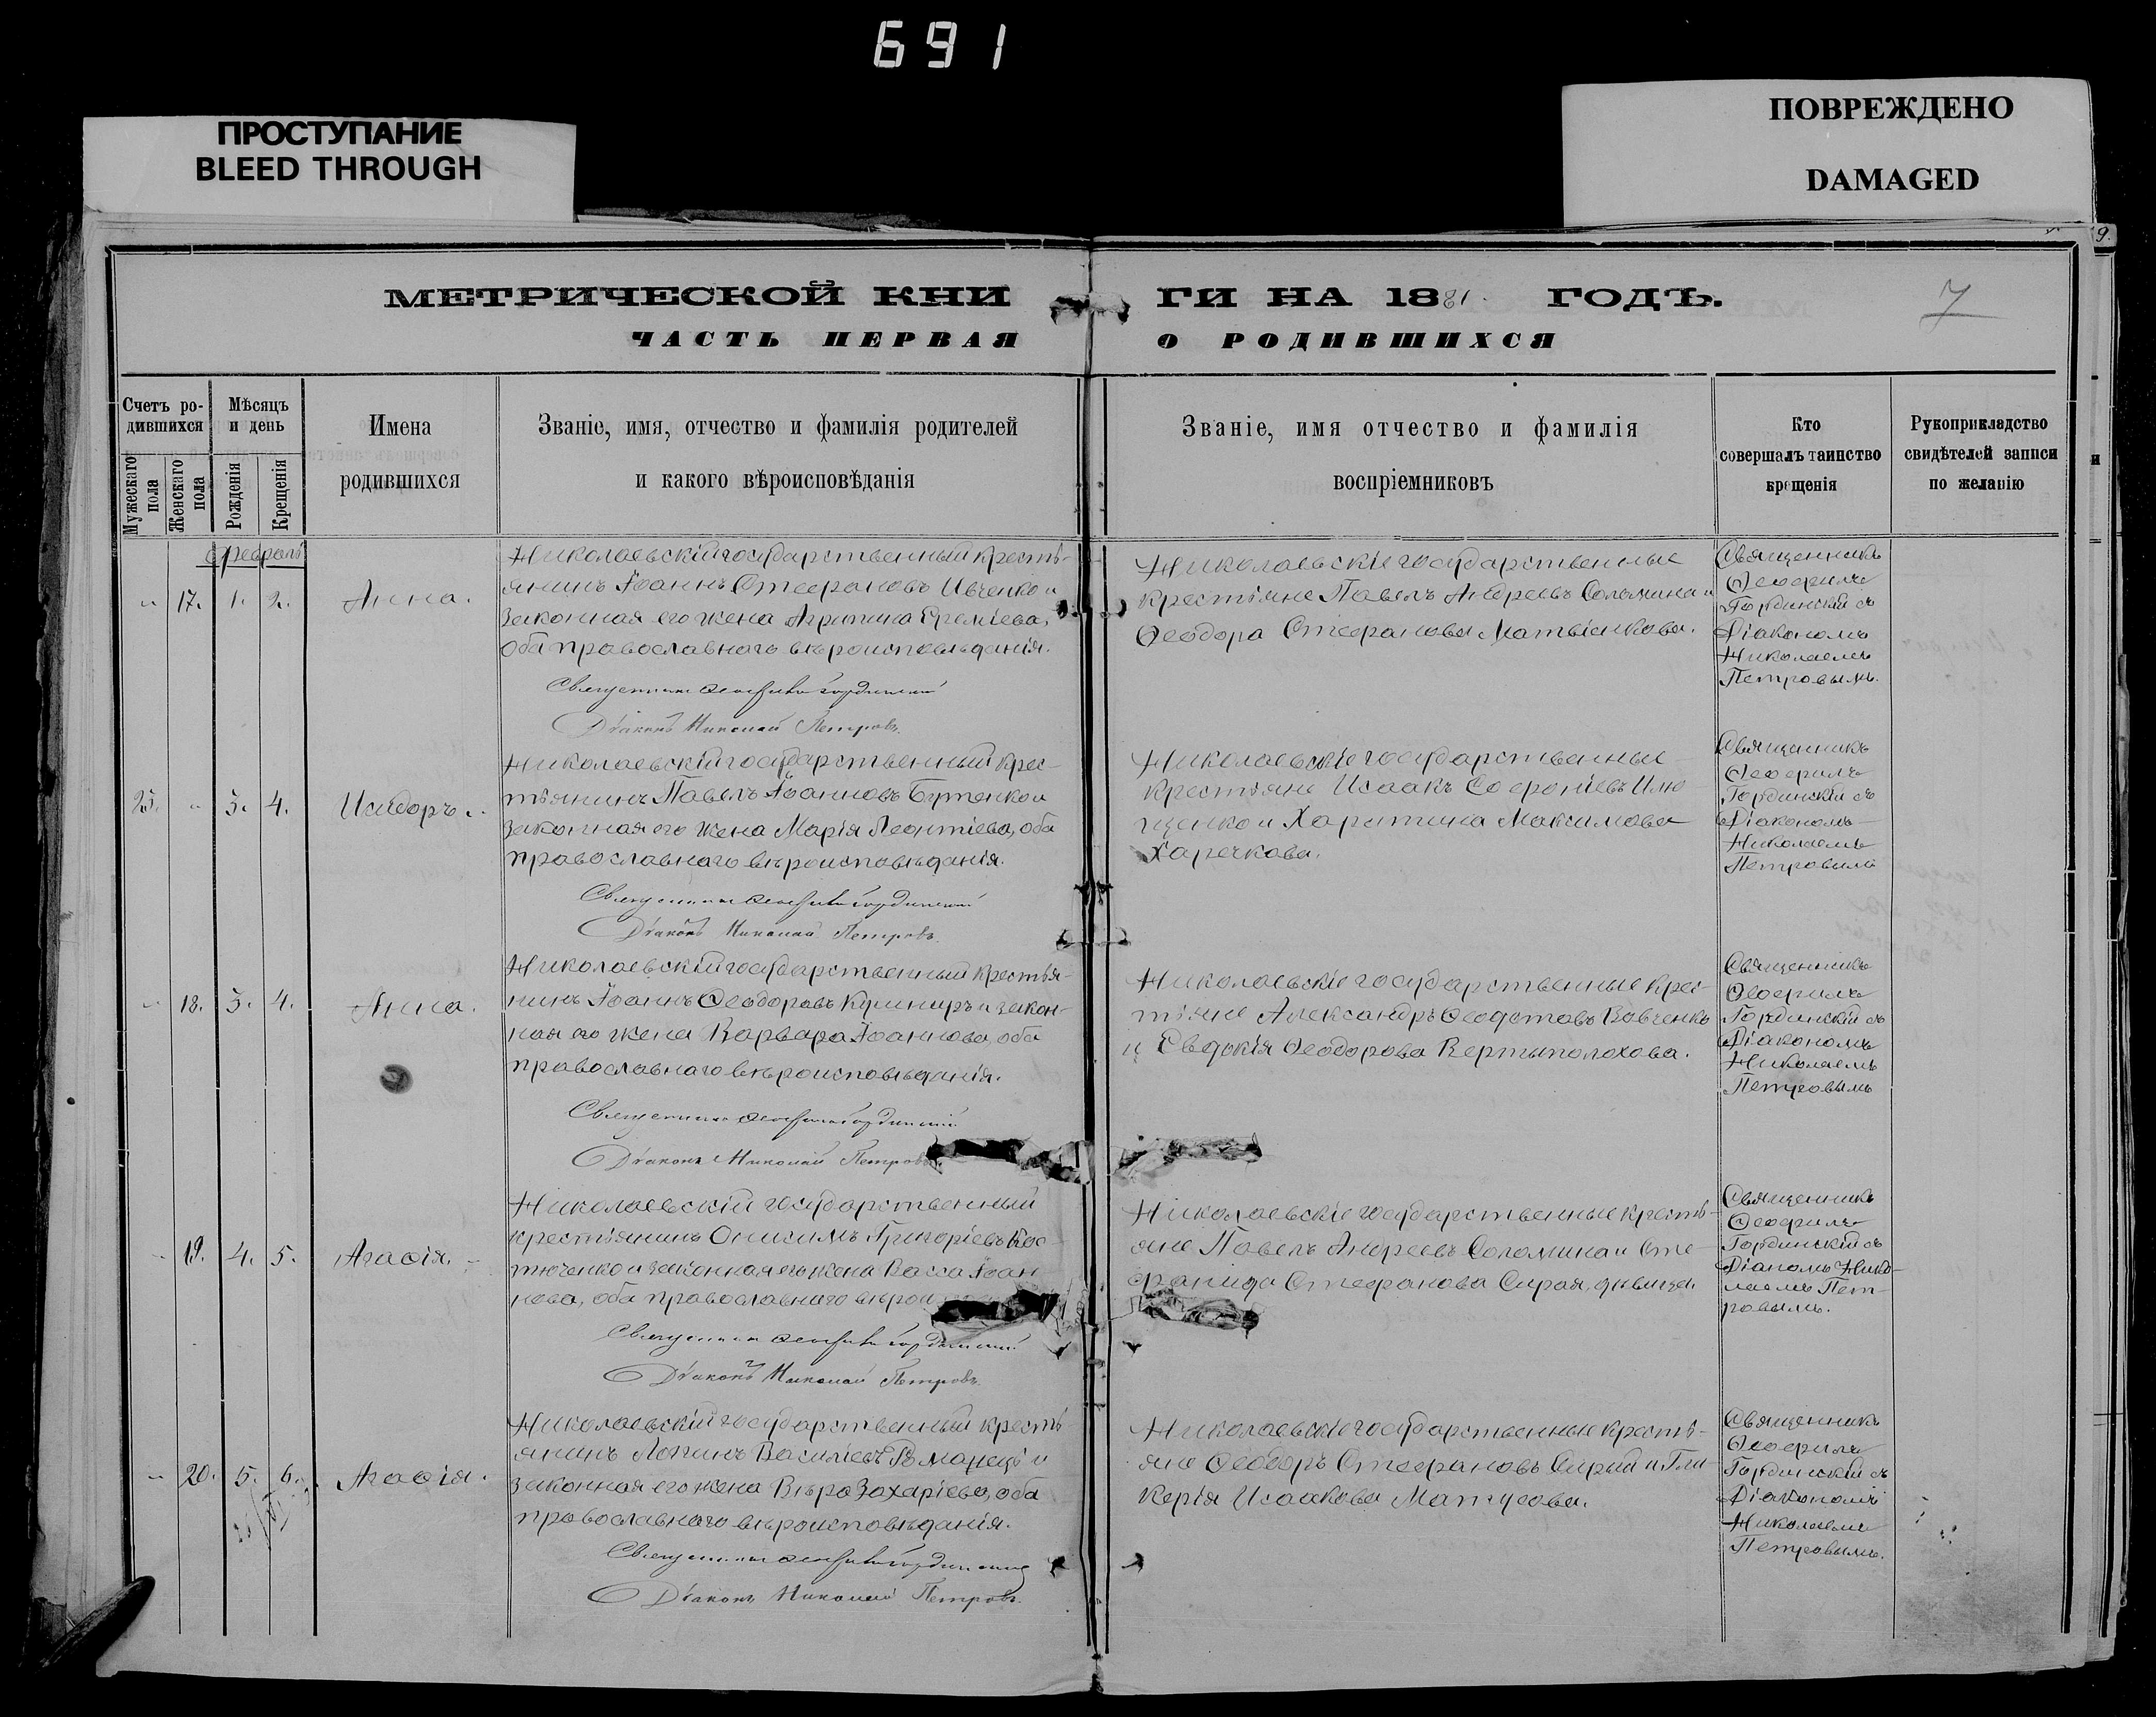 691
ПРОСТУПАНИЕ
BLEED THROUGH
ПОВРЕЖДЕНО
DAMAGED
9.
МЕТРИЧЕСКОЙ КНИГИ НА 1881. ГОДЪ.
7
ЧАСТЬ ПЕРВАЯ О РОДИВШИХСЯ
Счетъ ро-
дившихся
Мужескаго пола
Женскаго пола
Мѣсяцъ
и день
Рожденія
Крещенія
Имена
родившихся
Званіе, имя, отчество и фамилія родителей
и какого вѣроисповѣданія
Званіе, имя отчество и фамилія
воспріемниковъ
Кто
совершалъ таинство
крещенія
Рукоприкладство
свидѣтелей записи
по желанію
Февраль
17. 1. 2.
Анна.
Николаевскій государственный кресть-
янинъ Іоаннъ Стефановъ Ивченко и
законная его жена Агрипина Еремѣева,
оба православнаго вѣроисповѣданія.
Священникъ Ѳеофилъ Гординскій
Діаконъ Николай Петровъ.
Николаевскіе государственные
крестьяне Павелъ Андреевъ Соломина и
Ѳеодора Стефанова Матвіенкова.
Священникъ
Ѳеофилъ
Гординскій съ
Діакономъ
Николаемъ
Петровымъ.
25. 3. 4.
Исидоръ.
Николаевскій государственный крес-
тьянинъ Павелъ Іоанновъ Бутенко и
законная его жена Марія Леонтіева, оба
православнаго вѣроисповѣданія.
Священникъ Ѳеофилъ Гординскій
Діаконъ Николай Петровъ.
Николаевскіе государственные
крестьяне Исаакъ Софроніевъ Илю-
щенко и Харитина Максимова
Харечкова.
Священникъ
Ѳеофилъ
Гординскій съ
Діакономъ
Николаемъ
Петровымъ
18. 3. 4.
Анна.
Николаевскій государственный крестья-
нинъ Іоаннъ Ѳеодоровъ Кушниръ и закон-
ная его жена Варвара Іоаннова, оба
православнаго вѣроисповѣданія.
Священникъ Ѳеофилъ Гординскій
Діаконъ Николай Петровъ.
Николаевскіе государственные крес-
тьяне Александръ Ѳеодотовъ Вовченко
и Евдокія Ѳеодорова Вертыполохова.
Священникъ
Ѳеофилъ
Гординскій съ
Діакономъ
Николаемъ
Петровымъ
19. 4. 5.
Агаѳія.
Николаевскій государственный
крестьянинъ Онисимъ Григоріевъ Кос-
тюченко и законная его жена Васса Іоан-
нова, оба православнаго вѣрои
Священникъ Ѳеофилъ Гординскій
Діаконъ Николай Петровъ.
Николаевскіе государственные кресть-
яне Павелъ Андреевъ Соломина и Сте-
фанида Стефанова Сирая, дѣвица.
Священникъ
Ѳеофилъ
Гординскій съ
Діаконъ Нико-
лаемъ Пет-
ровымъ.
20. 5. 6.
Агаѳія.
Николаевскій государственный кресть-
янинъ Логинъ Василіевъ и
законная его жена Вѣра Захаріева, оба
православнаго вѣроисповѣданія.
Священникъ Ѳеофилъ Гординскій
Діаконъ Николай Петровъ.
Николаевскіе государственные кресть-
яне Ѳеодоръ Стефановъ Сирый и Гли-
керія Исаакова Матусова.
Священникъ
Ѳеофилъ
Гординскій съ
Діакономъ
Николаемъ
Петровымъ.